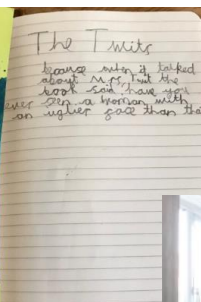 The Twits
because when it talked
about Mrs Twit the
book said have you
ever seen a woman with
an uglier face than tha